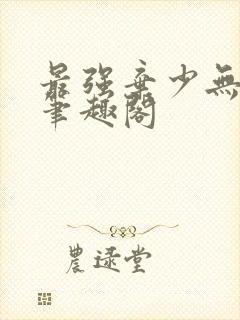 最强弃少無
筆趣閣
農逯堂